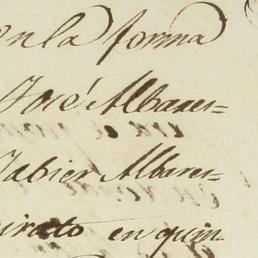 en la forma
José Albares=
Jabier Albares-
en quin-